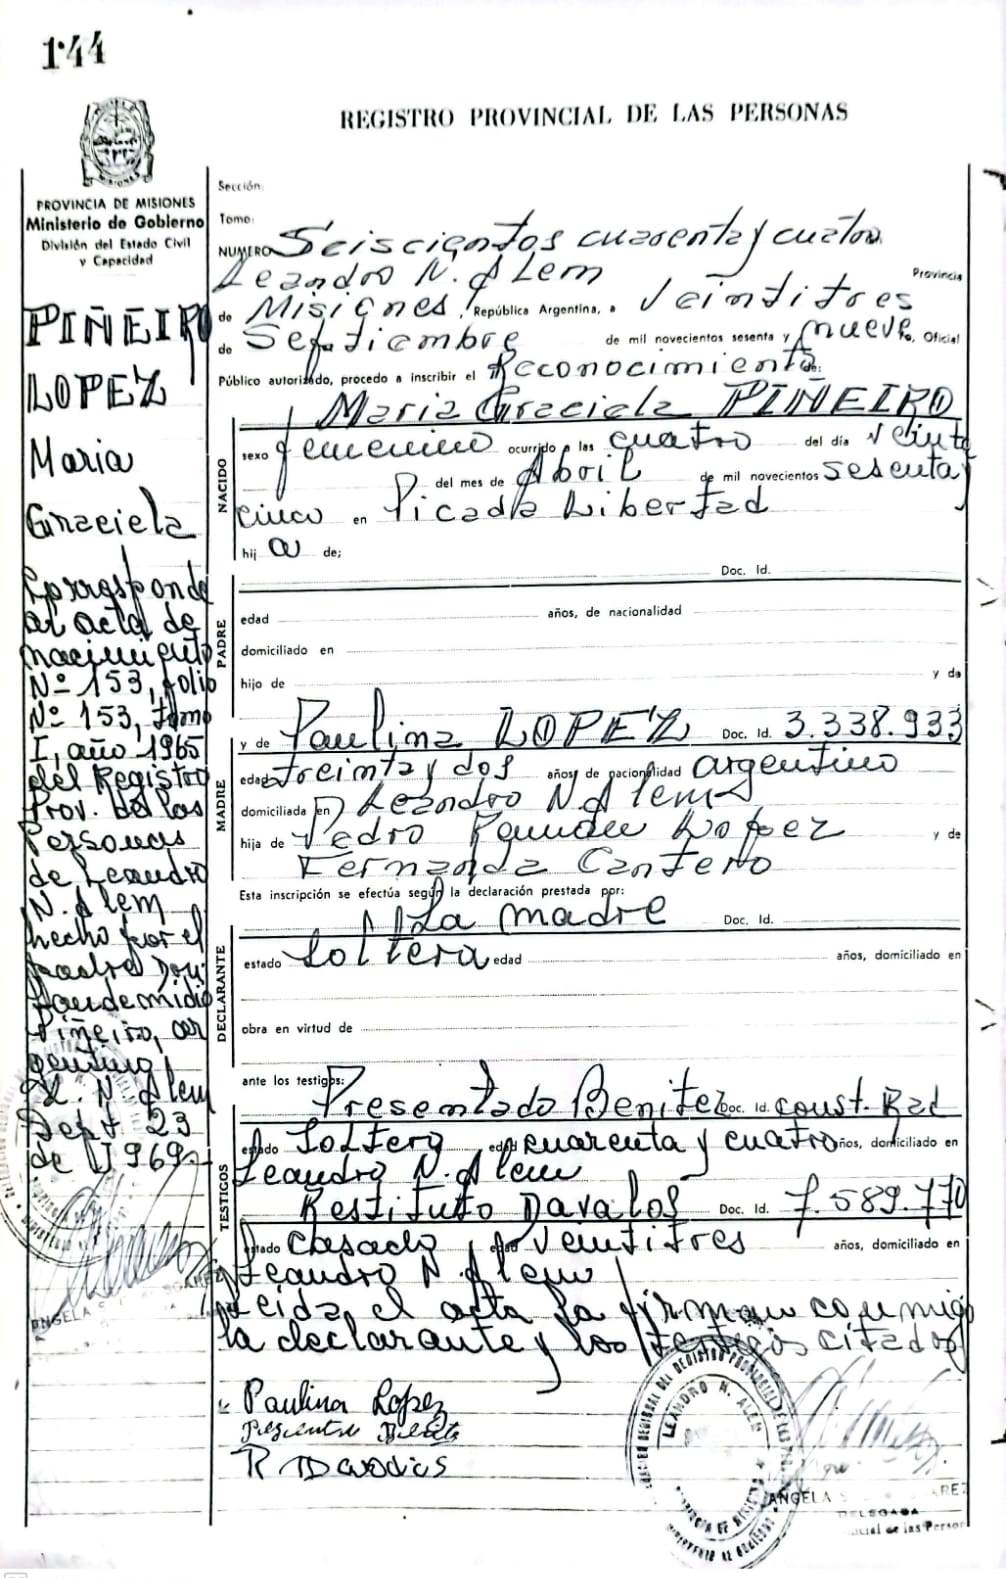 144
REGISTRO PROVINCIAL DE LAS PERSONAS
PROVINCIA DE MISIONES
Ministerio de Gobierno
División del Estado Civil
y Capacidad
PIÑEIRO
LOPEZ
Maria
Graciela
Corresponde
al acta de
nacimiento
Nº 153, folio
Nº 153, tomo
I, año 1965
del Registro
Prov. de las
Personas
de Leandro
N. Alem
hecho por el
padre Don
Laudemidio
Piñeiro, ar
gentino
L. N. Alem
Sept 23
de 1969
ANGELA S
Sección:
Tomo:
NUMERO Seiscientos cuarenta y cuatro
Leandro N. Alem Provincia
de Misiones, República Argentina, a Veintitres
de Septiembre de mil novecientos sesenta y nueve, Oficial
Público autorizado, procedo a inscribir el Reconocimiento de:
Maria Graciela PIÑEIRO
NACIDO
sexo femenino ocurrido a las cuatro del día veinte
del mes de Abril de mil novecientos sesenta y
cinco en Picada Libertad
hij a de;
PADRE
Doc. Id.
edad años, de nacionalidad
domiciliado en
hijo de y de
MADRE
y de Paulina LOPEZ Doc. Id. 3.338.933
edad treinta y dos años, de nacionalidad argentino
domiciliada en Leandro N. Alem
hija de Pedro Lopez y de
Fernanda Cantero
Esta inscripción se efectúa según la declaración prestada por:
DECLARANTE
La madre Doc. Id.
estado Soltera edad años, domiciliado en
obra en virtud de
ante los testigos:
TESTIGOS
Presentado Benitez Doc. Id. const. Rad
estado Soltero edad cuarenta y cuatro años, domiciliado en
Leandro N. Alem
Restituto Davalos Doc. Id. 7.589.770
estado Casado edad veintitres años, domiciliado en
Leandro N. Alem
Leida el acta la firman conmigo
la declarante y los testigos citados
Paulina Lopez
LEANDRO N. ALEM
ANGELA S AREZ
DELEGADA